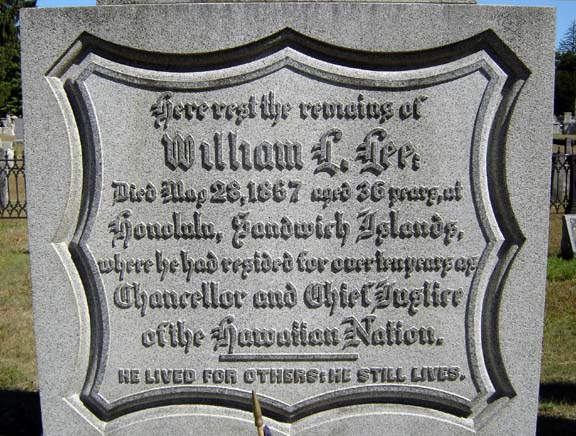 Here rest the remains of
William L. Lee:
Died May 28, 1857 aged 36 years, at
Honolulu, Sandwich Islands,
where he had resided for over ten years as
Chancellor and Chief Justice
of the Hawaiian Nation.
HE LIVED FOR OTHERS: HE STILL LIVES.